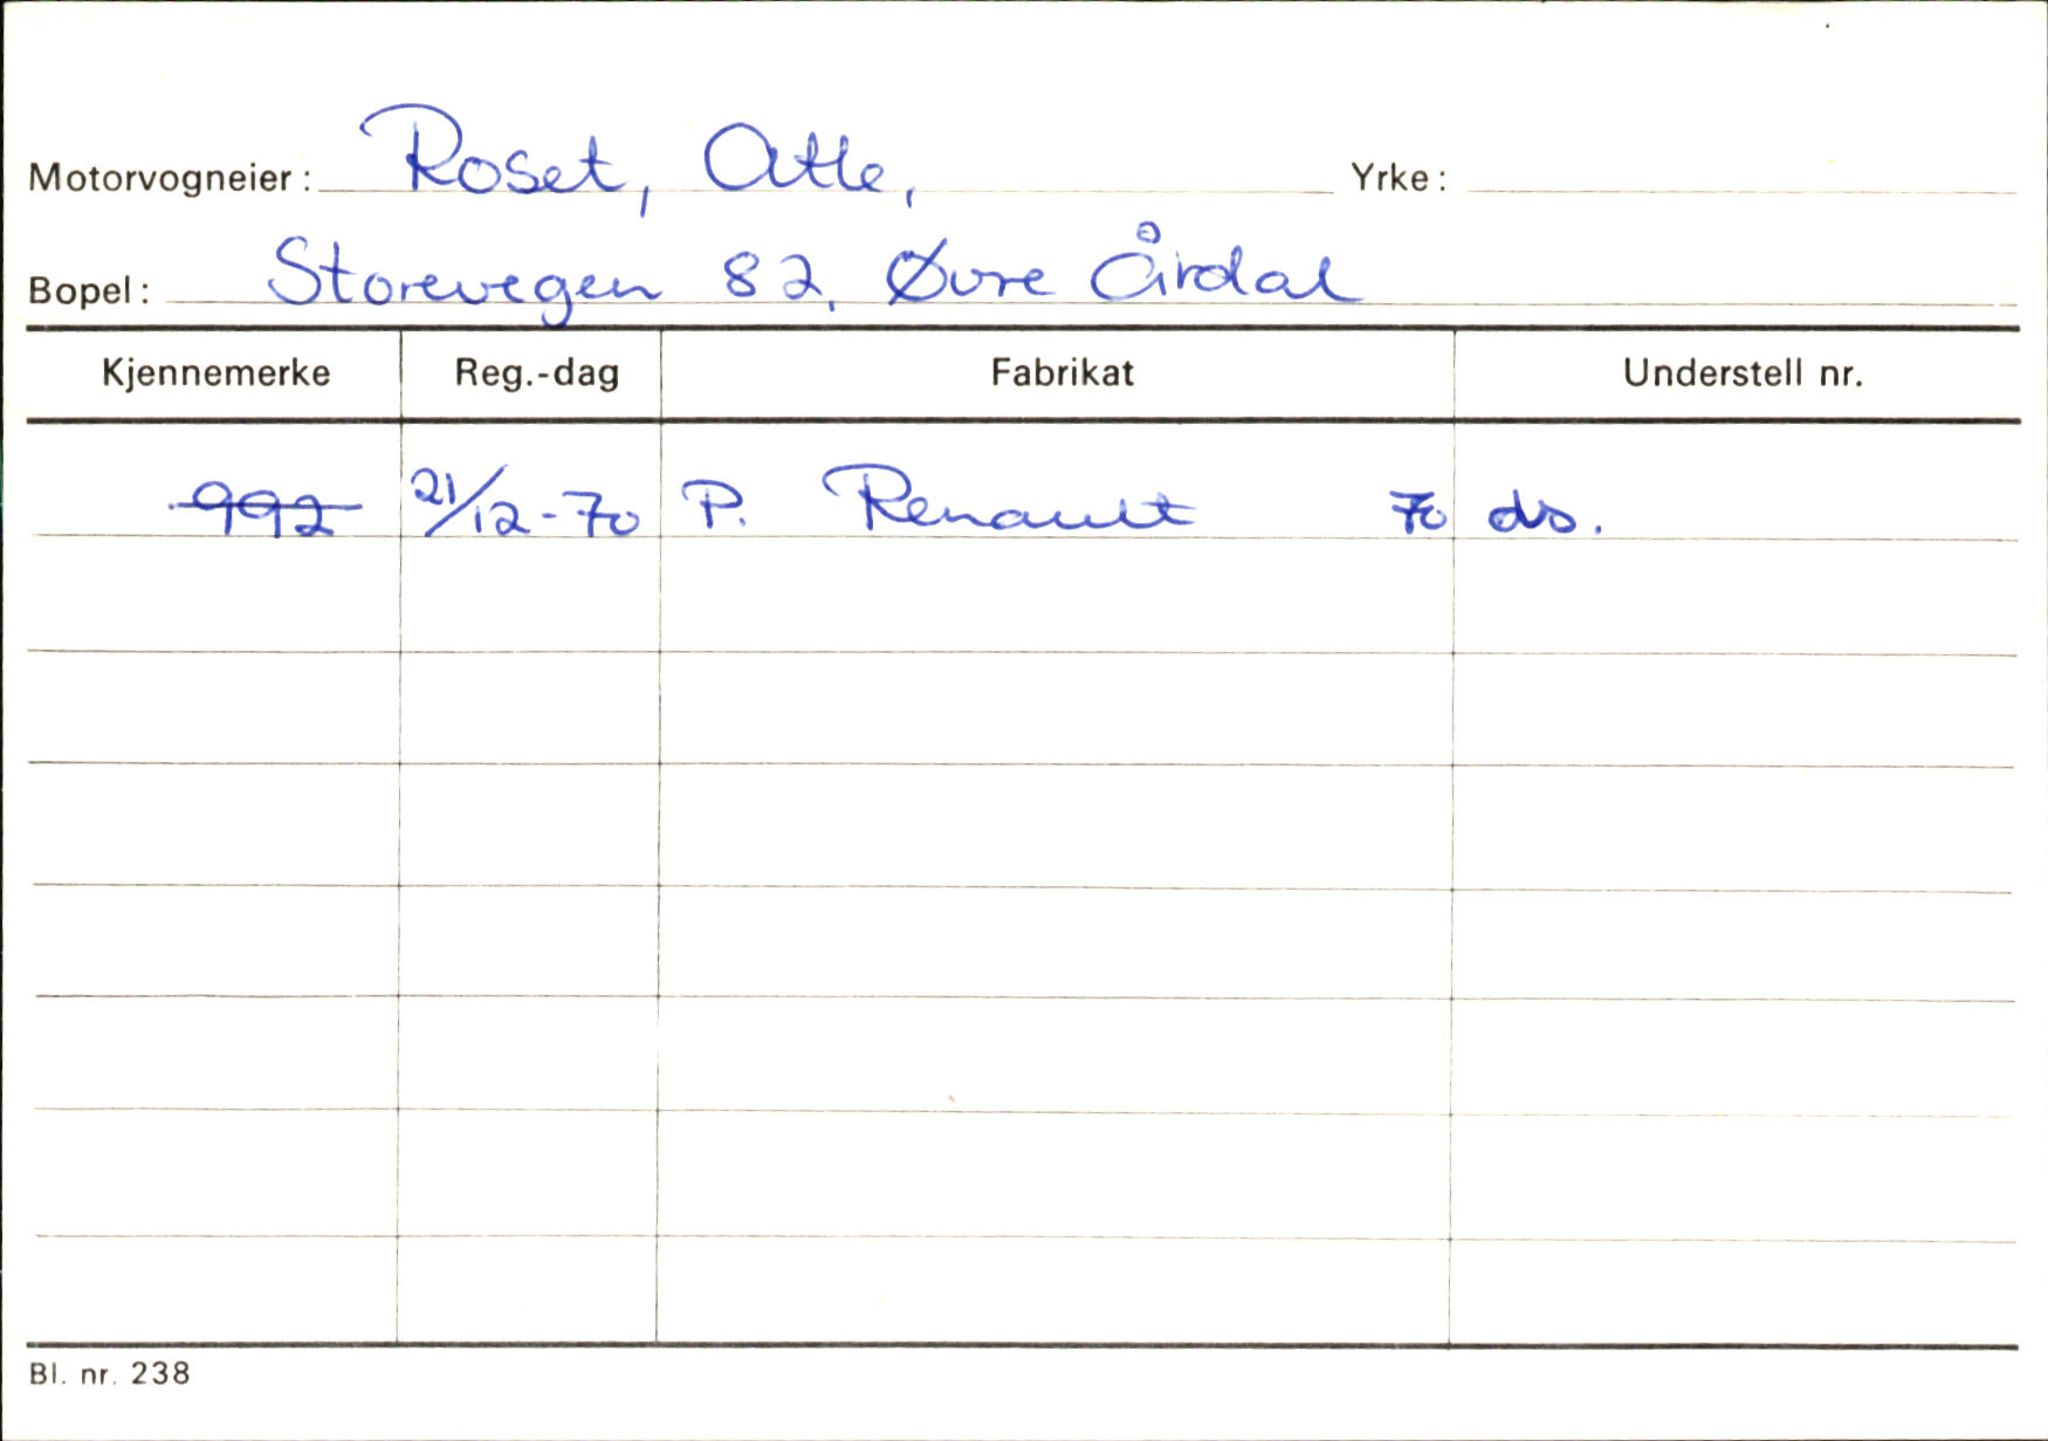 Motorvogneier: Roset, Atle, Yrke:
Bopel: Storevegen 82, Øvre Årdal
Kjennemerke Reg.-dag Fabrikat Understell nr.
992 21/12-70 P. Renault 70 ds.
Bl. nr. 238